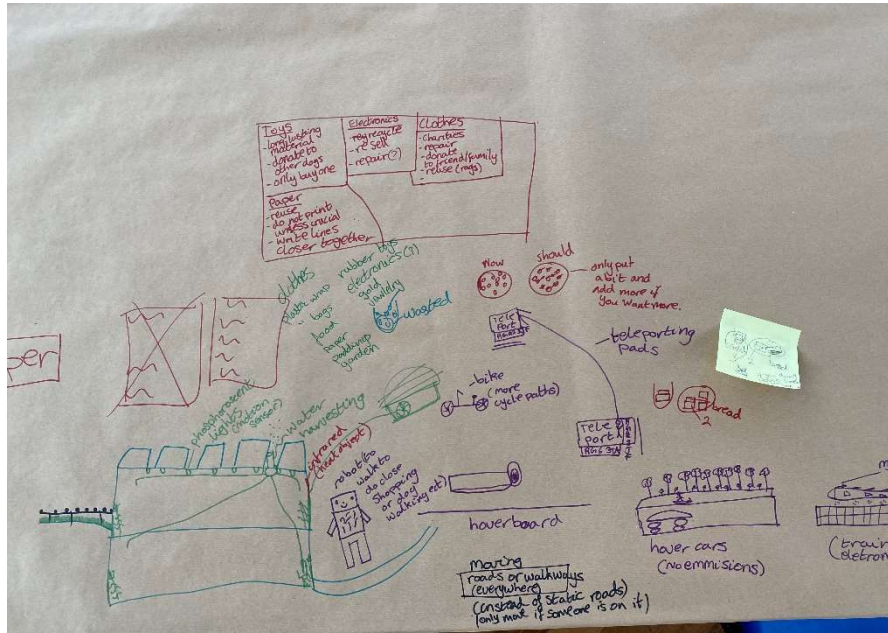 Toys
- long lasting
material
- donate to
other dogs
- only buy one
Electronics
recycle
- re sell
- repair(?)
Clothes
- charities
- repair
- donate
to friend/family
- reuse (rags)
-
Paper
- reuse
- do not print
unless crucial
- write lines
closer together
clothes
plastic wrap
bags
food
paper
garden
rubber toys
electronics(?)
gold
wasted
now
should
only put
a bit and
add more if
you want more.
TELE
PORT
- teleporting
pads
per
phosphorescent
lights
(motion
sensor)
water
harvesting
infrared
(heat object)
- bike
(more
cycle paths)
bread
2
TELE
PORT
robot to
walk to
do close
shopping
or dog
walking ect
hoverboard
hover cars
(no emmisions)
(train
eletron
moving
roads or walkways
(everywhere)
(instead of static roads)
(only move if someone is on it)